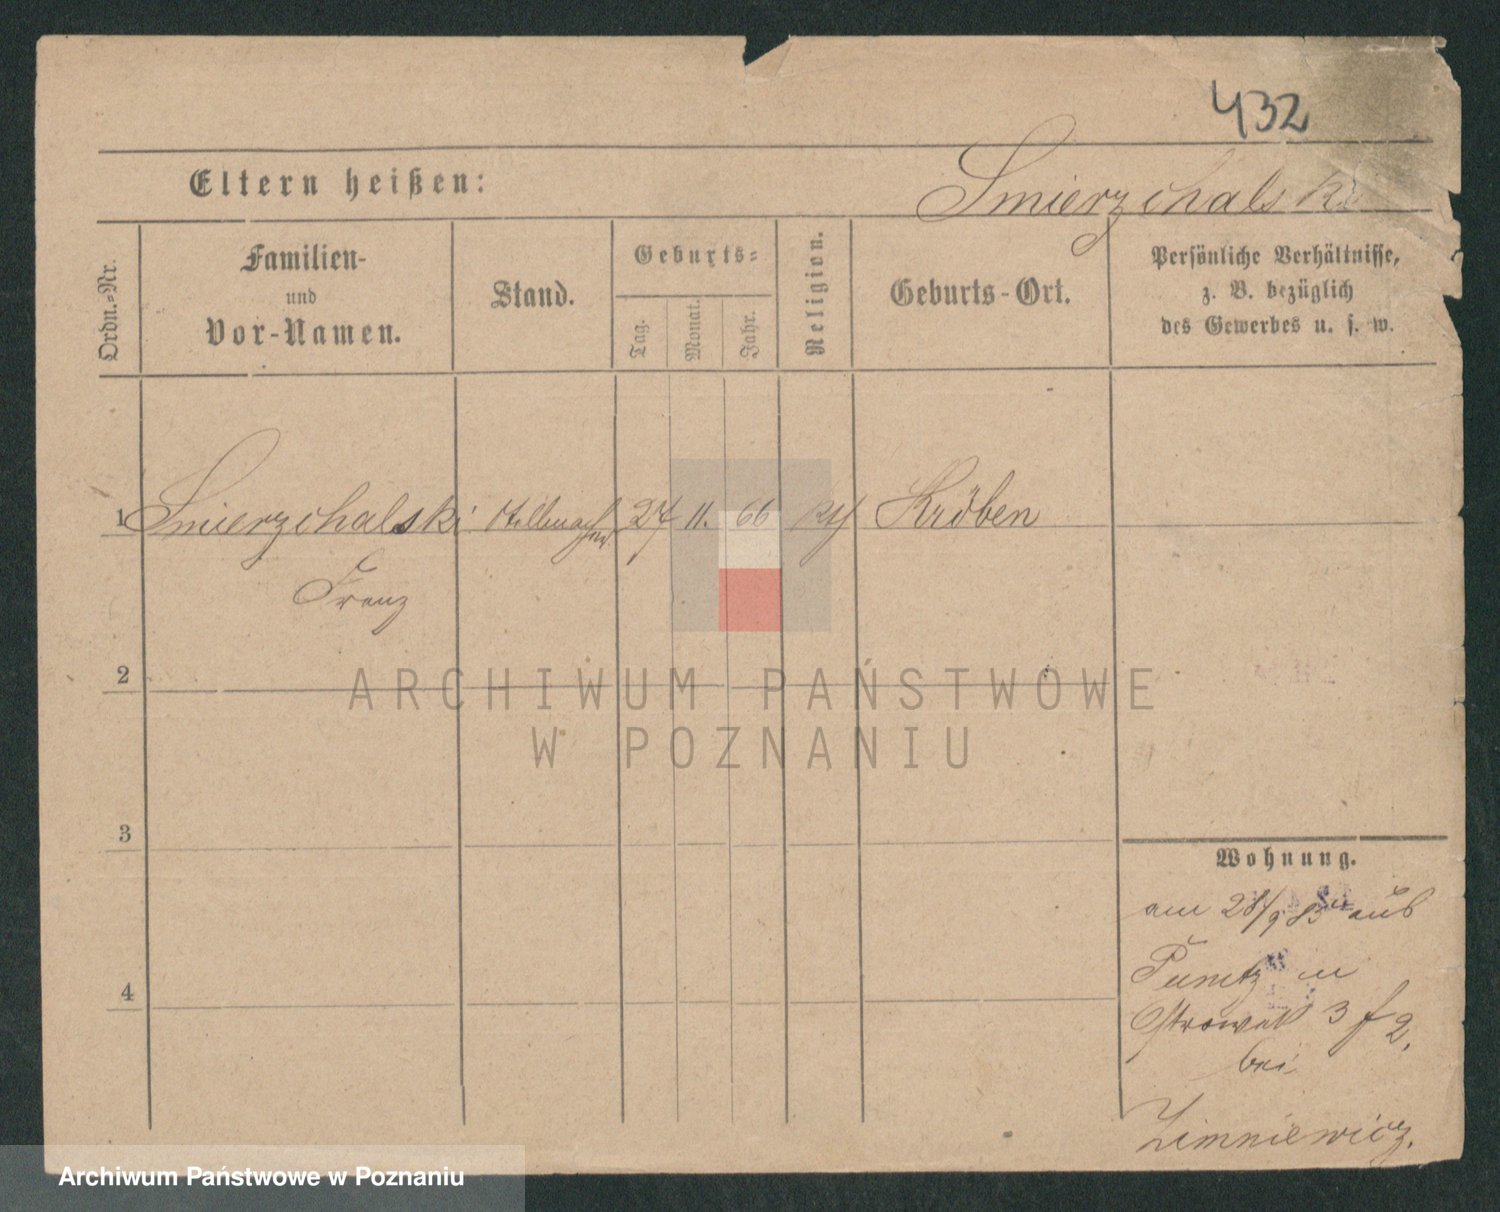 432
Eltern heißen:
Smierzchalski
Ordn.=Nr.
Familien-
und
Vor-Namen.
Stand.
Geburts=
Tag.
Monat.
Jahr.
Religion.
Geburts-Ort.
Persönliche Verhältnisse,
z. B. bezüglich
des Gewerbes u. s. w.
1 Smierzchalski 27 11. 66 Kröben
Franz
2
ARCHIWUM PAŃSTWOWE
W POZNANIU
3
4
Wohnung.
am 28/9 85 aus
Punitz
Ostrowek 3
bei
Zimniewicz.
Archiwum Państwowe w Poznaniu